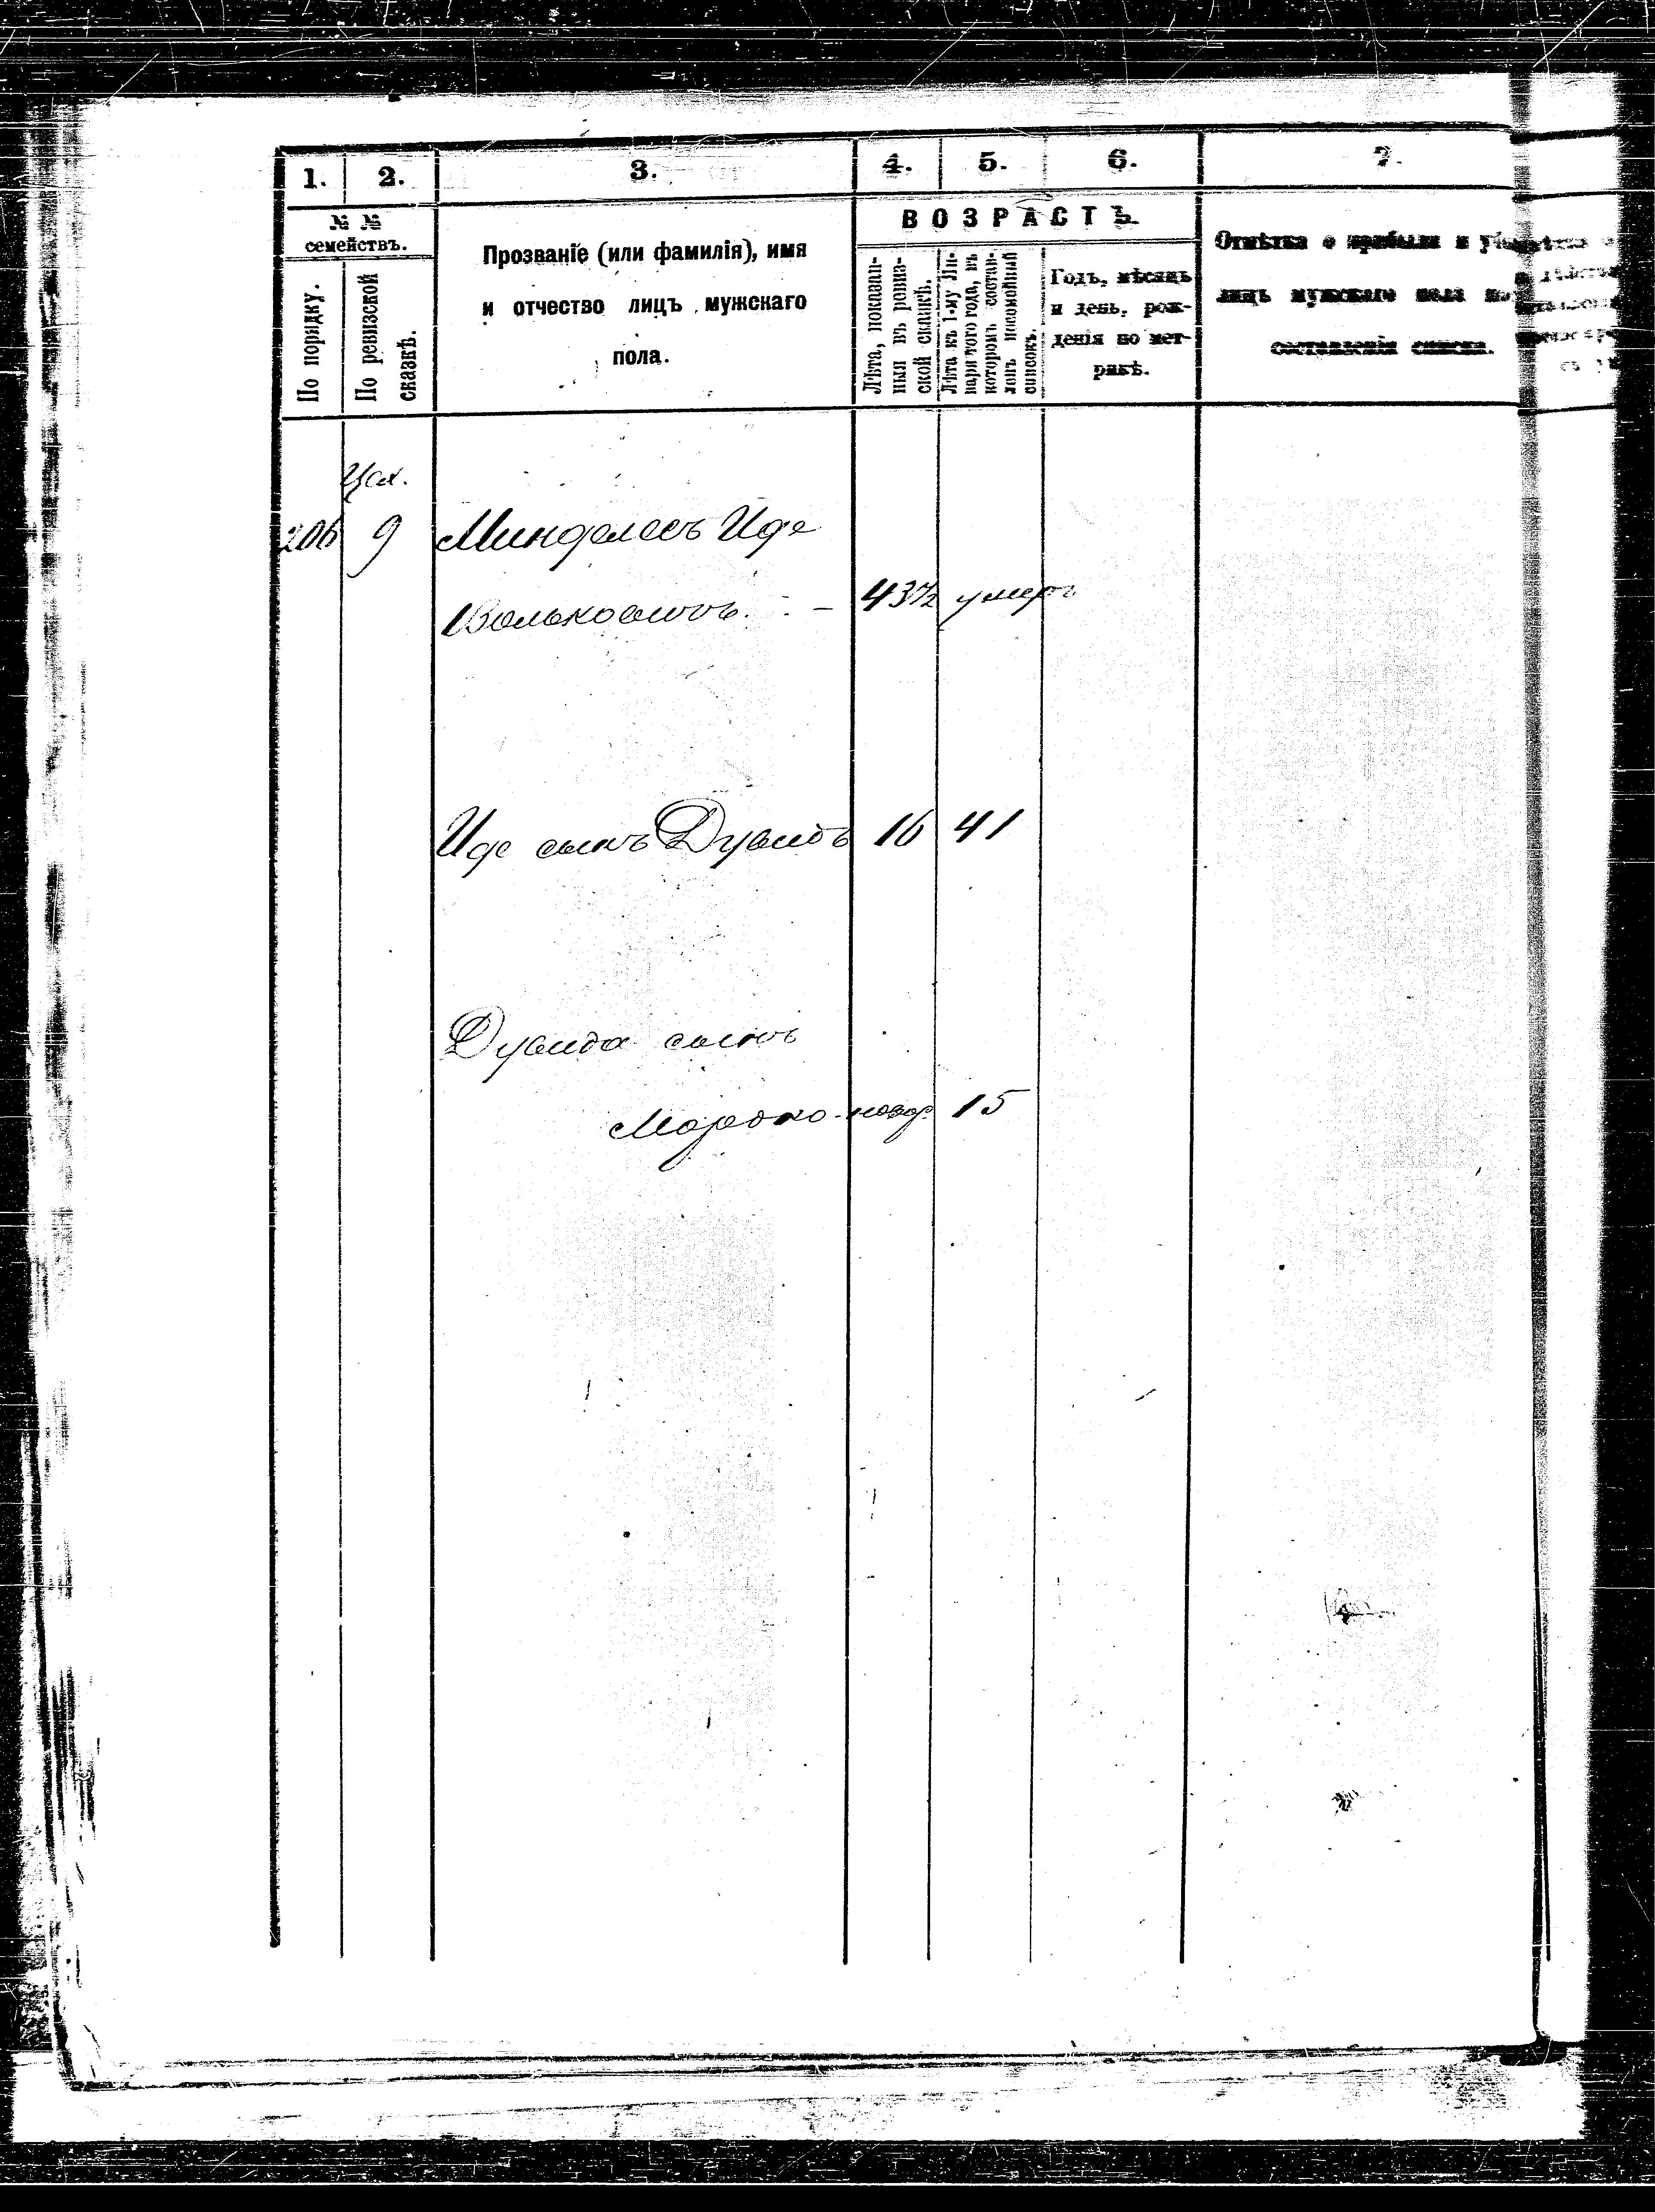 1. 2. 3. 4. 5. 6. 7.
№ №
семействъ.
По порядку.
По ревизской
сказкѣ.
Прозваніе (или фамилія), имя
и отчество лицъ мужскаго
пола.
ВОЗРАСТЪ
Лѣта, показан-
ныя въ ревиз-
ской сказкѣ.
Лѣта къ 1-му Ян-
варя того года, въ
которомъ состав-
ленъ посемейный
списокъ.
Годъ, мѣсяцъ
и день, рож-
денія по мет-
рикѣ.
Отмѣтка о прибыли и
лицъ мужскаго пола
составленія списка.
Цех.
206 9 Минделевъ Иде
43½ умеръ
Иде сынъ Дувидъ 16 41
Дувида сынъ
Мордхо новор. 15